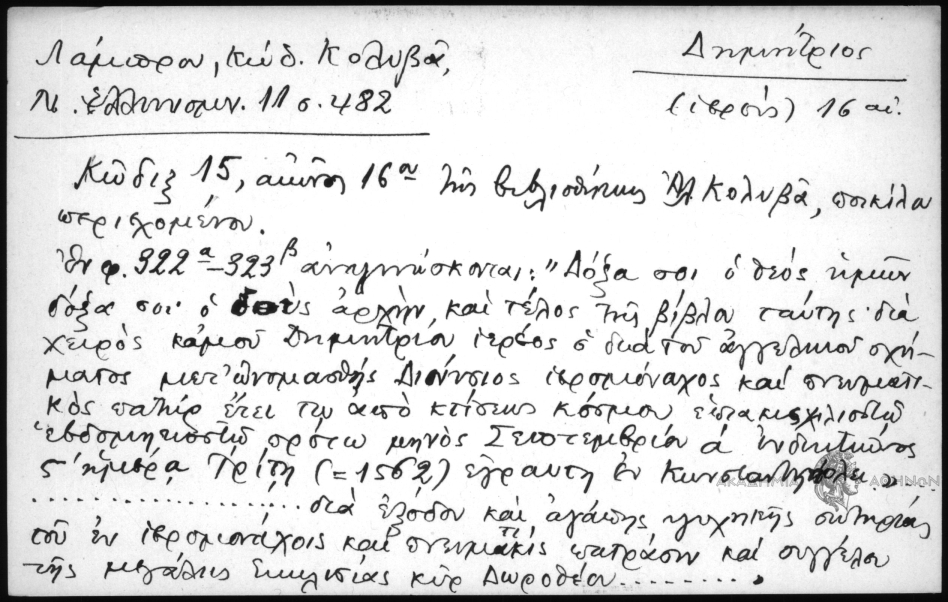 Λάμπρου, Κώδ. Κολυβᾶ,
Ν. Ἑλληνομν. 11 σ. 482
Δημήτριος
(ἱερεύς) 16 αἰ.
Κῶδιξ 15, αἰῶνος 16ου τῆς βιβλιοθήκης Ἀλ. Κολυβᾶ, ποικίλου
περιεχομένου.
Ἐν φ. 322α-323β ἀναγινώσκονται: "Δόξα σοι ὁ θεός ἡμῶν
δόξα σοι· ὁ δοὺς ἀρχὴν καὶ τέλος τῆς βίβλου ταύτης διὰ
χειρὸς κἀμοῦ Δημητρίου ἱερέος ὁ διὰ τοῦ ἀγγελικοῦ σχή-
ματος μετωνομασθῆς Διονύσιος ἱερομόναχος καὶ πνευματι-
κὸς πατὴρ ἔτει τῷ ἀπὸ κτίσεως κόσμου ἑπτακισχιλιοστῶ
ἑβδομηκοστῶ πρότω μηνὸς Σεπτεμβρίου α ἰνδικτιῶνος
ς ἡμέρᾳ Τρίτῃ (=1562) ἐγράφη ἐν Κωνσταντινουπόλει ...
.................... διὰ ἐξόδου καὶ ἀγάπης ψυχικῆς σωτηρίας
τοῦ ἐν ἱερομονάχοις καὶ πνευματικῖς πατράσιν καὶ συγγέλου
τῆς μεγάλης Ἐκκλισίας κὺρ Δωροθέου .........
ΑΚΑΔΗΜΙΑ ΑΘΗΝΩΝ